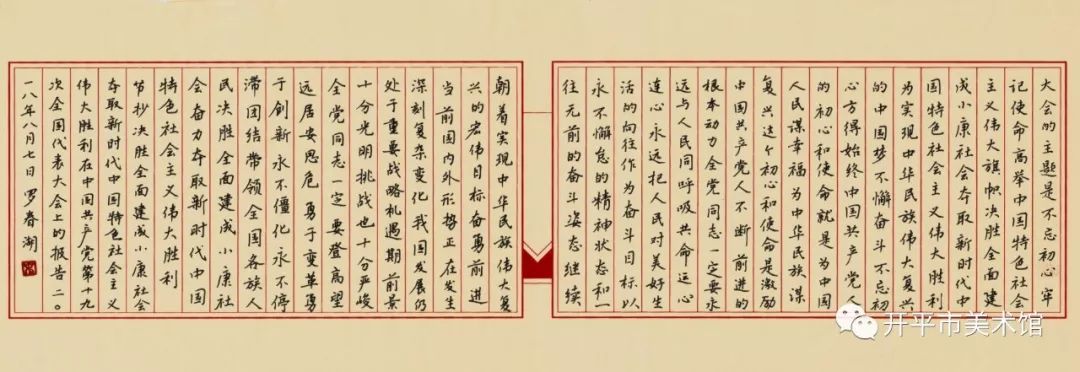 大会的主题是不忘初心牢
记使命高举中国特色社会
主义伟大旗帜决胜全面建
成小康社会夺取新时代中
国特色社会主义伟大胜利
为实现中华民族伟大复兴
的中国梦不懈奋斗不忘初
心方得始终中国共产党人
的初心和使命就是为中国
人民谋幸福为中华民族谋
复兴这个初心和使命是激励
中国共产党人不断前进的
根本动力全党同志一定要永
远与人民同呼吸共命运心
连心永远把人民对美好生
活的向往作为奋斗目标以
永不懈怠的精神状态和一
往无前的奋斗姿态继续
朝着实现中华民族伟大复
兴的宏伟目标奋勇前进
当前国内外形势正在发生
深刻复杂变化我国发展仍
处于重要战略机遇期前景
十分光明挑战也十分严峻
全党同志一定要登高望
远居安思危勇于变革勇
于创新永不僵化永不停
滞团结带领全国各族人
民决胜全面建成小康社
会奋力夺取新时代中国
特色社会主义伟大胜利
节抄决胜全面建成小康社会
夺取新时代中国特色社会主义
伟大胜利在中国共产党第十九
次全国代表大会上的报告二〇
一八年八月七日罗春湖
开平市美术馆